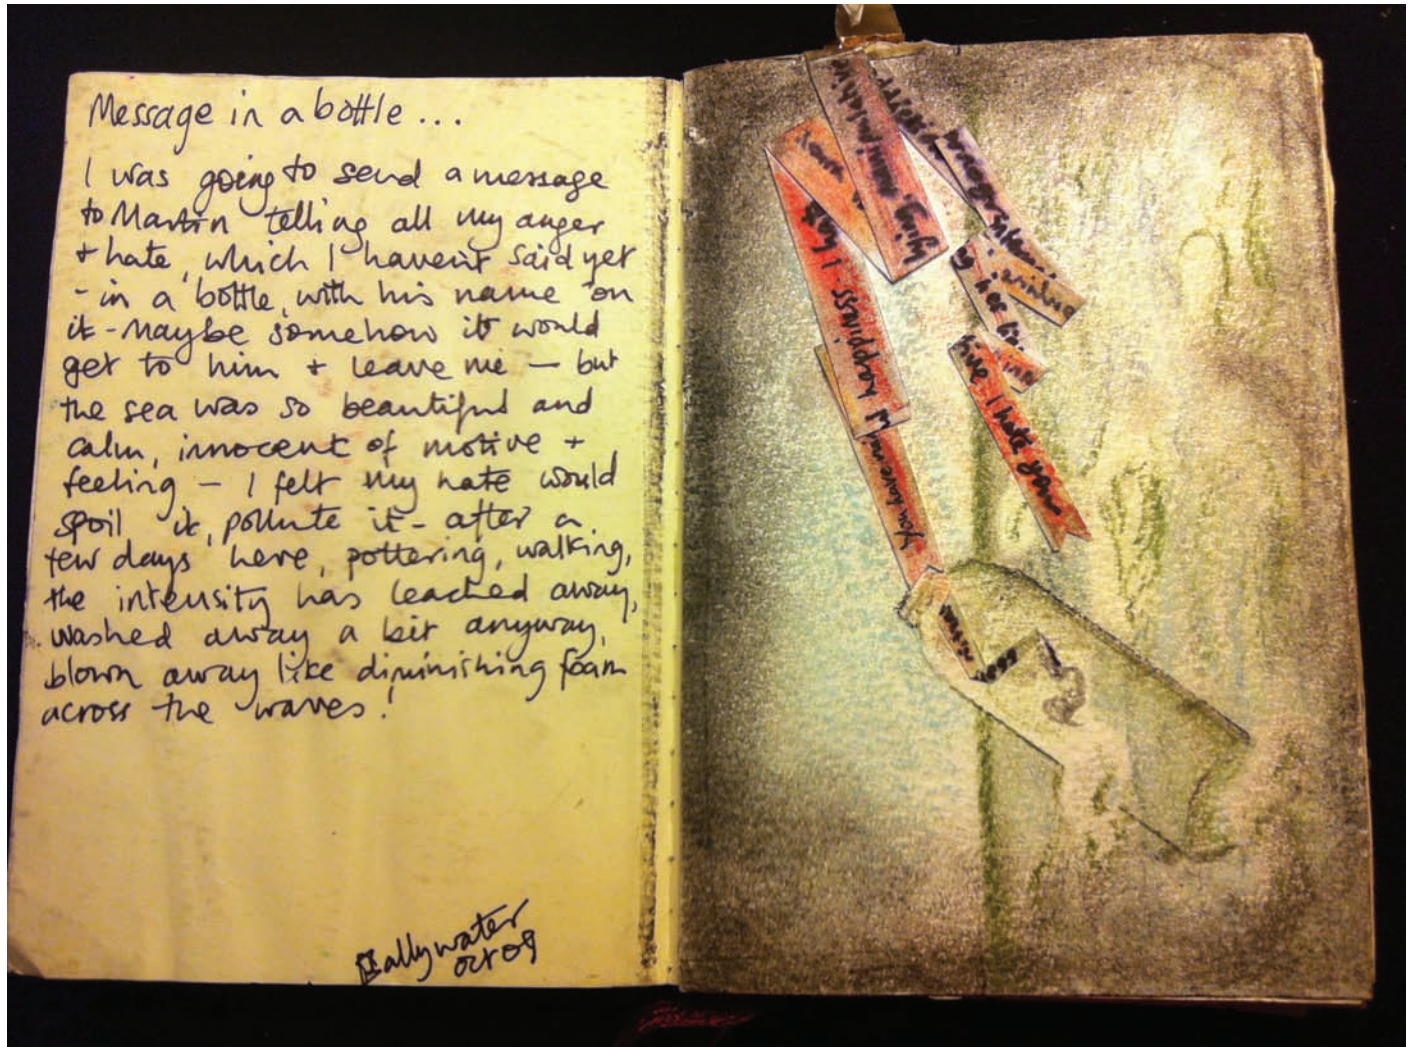 Message in a bottle...
I was going to send a message
to Martin telling all my anger
+ hate, which I havent said yet
- in a bottle, with his name on
it - Maybe somehow it would
get to him + leave me - but
the sea was so beautiful and
calm, innocent of motive +
feeling - I felt my hate would
spoil it, pollute it - after a
few days here, pottering, walking,
the intensity has leached away,
washed away a bit anyway,
blown away like diminishing foam
across the waves!
Ballywater
oct 09
you
lying, manipulative
I hate
happiness
You have
I hate you